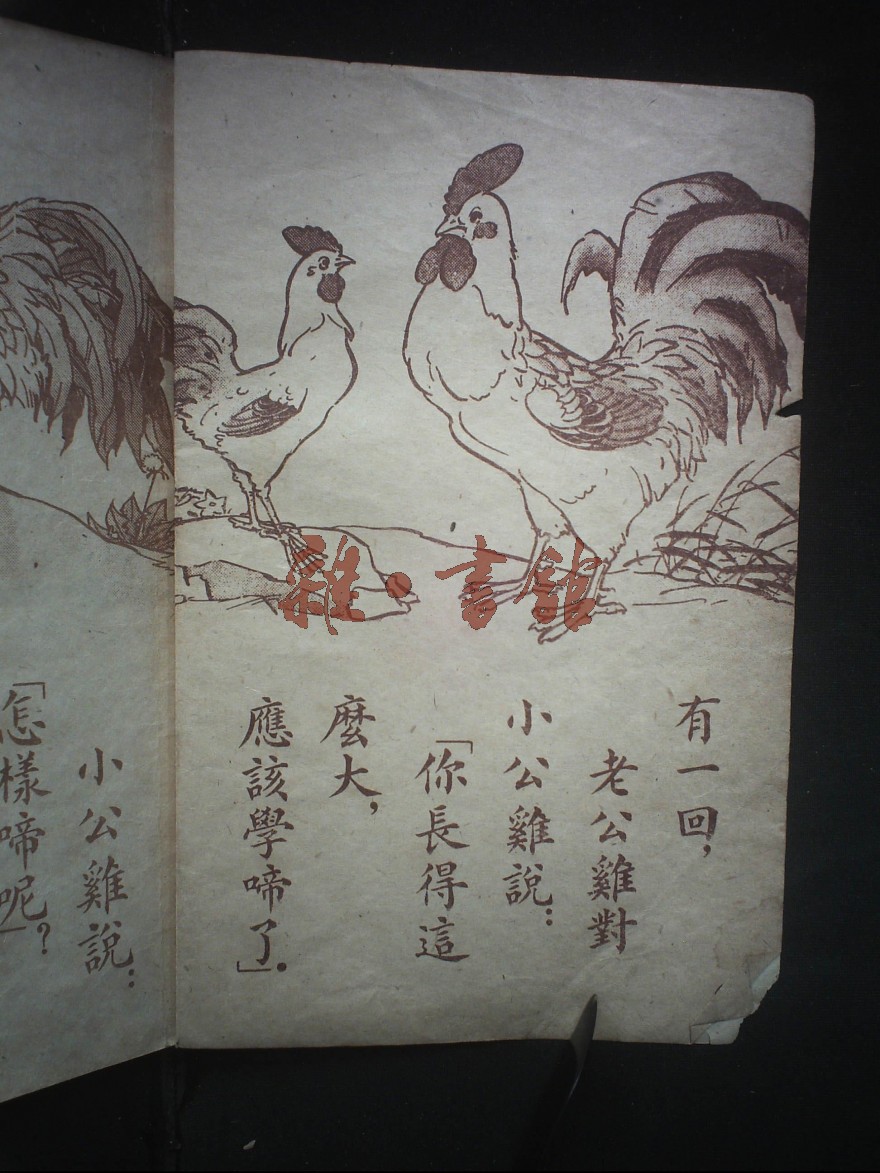 有一回，
老公雞對
小公雞說：
「你長得這
麼大，
應該學啼了」．
小公雞說：
「怎樣啼呢」？
雜·書館